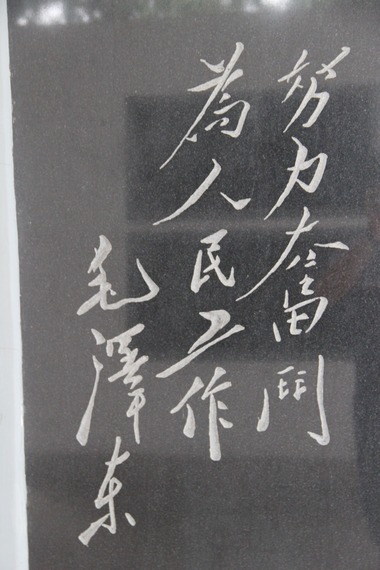 努力奮鬥
為人民工作
毛澤东